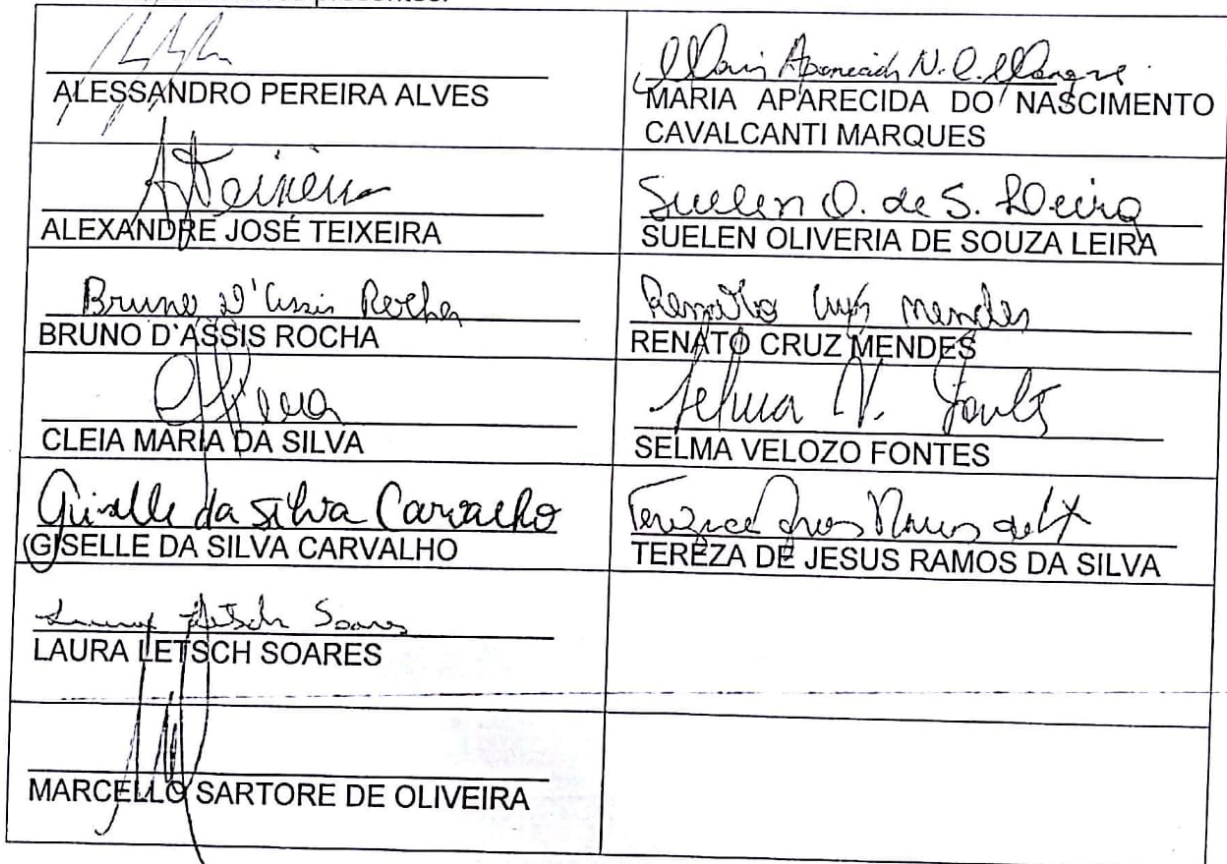 presentes.
ALESSANDRO PEREIRA ALVES
Maria Aparecida N. C. Marques
MARIA APARECIDA DO NASCIMENTO
CAVALCANTI MARQUES
ATeixeira
ALEXANDRE JOSÉ TEIXEIRA
Suelen O. de S. Leira
SUELEN OLIVERIA DE SOUZA LEIRA
Bruno D'Assis Rocha
BRUNO D`ASSIS ROCHA
Renato Cruz Mendes
RENATO CRUZ MENDES
CLEIA MARIA DA SILVA
Selma V. Fontes
SELMA VELOZO FONTES
Giselle da Silva Carvalho
GISELLE DA SILVA CARVALHO
TEREZA DE JESUS RAMOS DA SILVA
Laura Letsch Soares
LAURA LETSCH SOARES
MARCELLO SARTORE DE OLIVEIRA